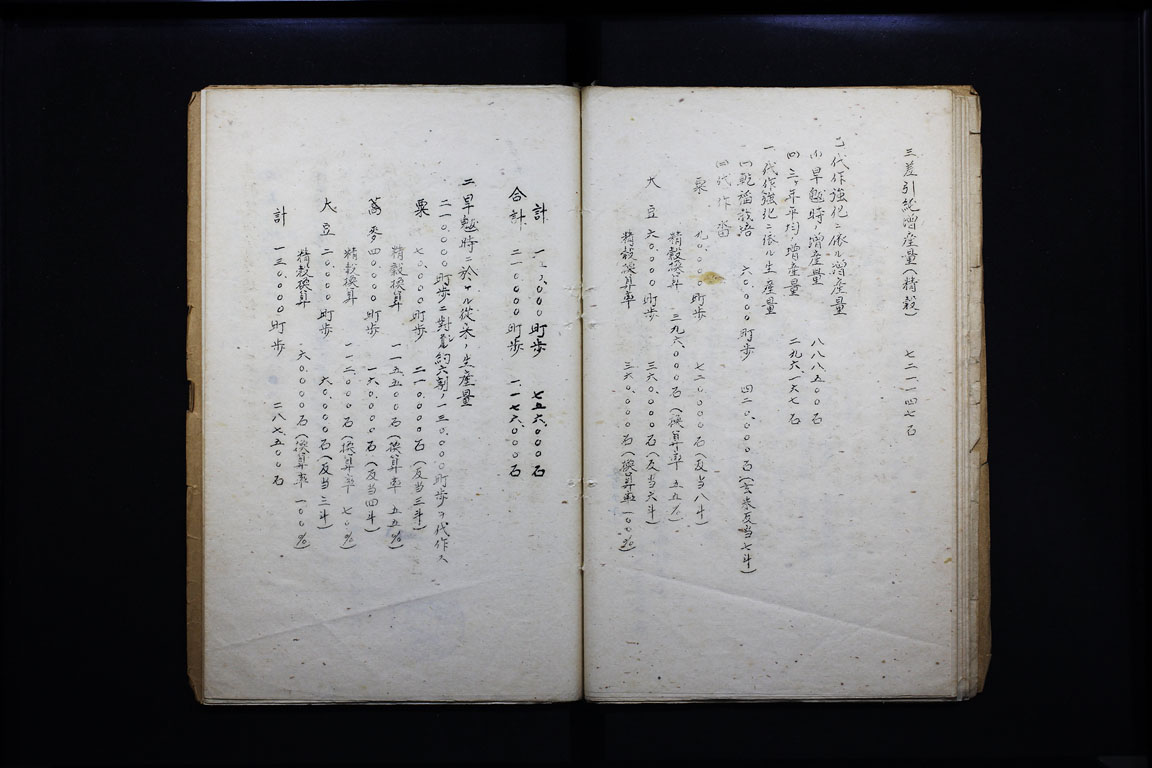 三、差引總增產量(精穀) 七二一、一四七石
乙、代作強化ニ依ル增產量
(イ) 旱魃時ノ增產量 八八八、五〇〇石
(ロ) 三ヶ年平均ノ增產量 二九六、一六七石
一、代作強化ニ依ル生產量
(一) 乾稻栽培 六〇、〇〇〇町步 四二〇、〇〇〇石(玄米反当七斗)
(二) 代作畓
粟 九〇、〇〇〇町步 七二〇、〇〇〇石(反当八斗)
精穀換算 三九六、〇〇〇石(換算率 五五%)
大豆 六〇、〇〇〇町步 三六〇、〇〇〇石(反当六斗)
精穀換算率 三六〇、〇〇〇石(換算率一〇〇%)
計 一五〇、〇〇〇町步 七五六、〇〇〇石
合計 二一〇、〇〇〇町步 一、一七六、〇〇〇石
二、旱魃時ニ於ケル從来ノ生產量
二一〇、〇〇〇町步ニ對シ約六割ノ一三〇、〇〇〇町步ヲ代作ス
粟 七〇、〇〇〇町步 二一〇、〇〇〇石(反当三斗)
精穀換算 一一五、五〇〇石(換算率 五五%)
蕎麥 四〇、〇〇〇町步 一六〇、〇〇〇石(反当四斗)
精穀換算 一一二、〇〇〇石(換算率 七〇%)
大豆 二〇、〇〇〇町步 六〇、〇〇〇石(反当三斗)
精穀換算 六〇、〇〇〇石(換算率 一〇〇%)
計 一三〇、〇〇〇町步 二八七、五〇〇石